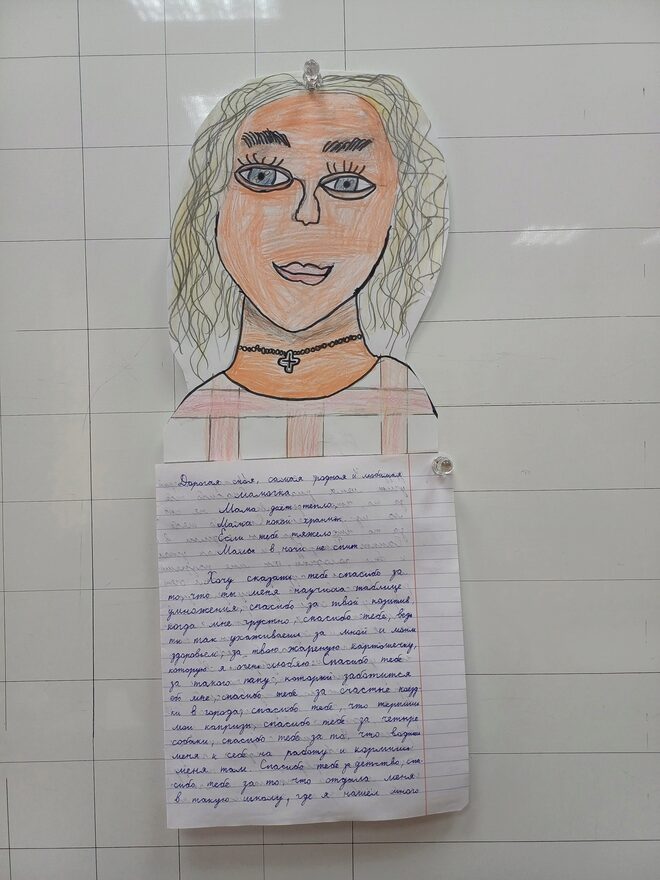 Дорогая моя, самая родная и любимая
мамочка
Мама дает тепло,
Мама покой хранит.
Если тебе тяжело
Мамы в ночи не спит
Хочу сказать тебе спасибо за
то, что ты меня научила таблице
умножения, спасибо за твой позитив,
когда мне грустно, спасибо тебе, ведь
ты так ухаживаешь за мной и моим
здоровьем, за твою жареную картошечку,
которую я очень люблю. Спасибо тебе
за такого папу, который заботится
обо мне, спасибо тебе за счастье поезд-
ки в города, спасибо тебе, что терпишь
мои капризы, спасибо тебе за четыре
собаки, спасибо тебе за то, что водишь
меня к себе на работу и кормишь
меня там. Спасибо тебе за детство, спа-
сибо тебе за то, что отдала меня
в такую школу, где я нашёл много